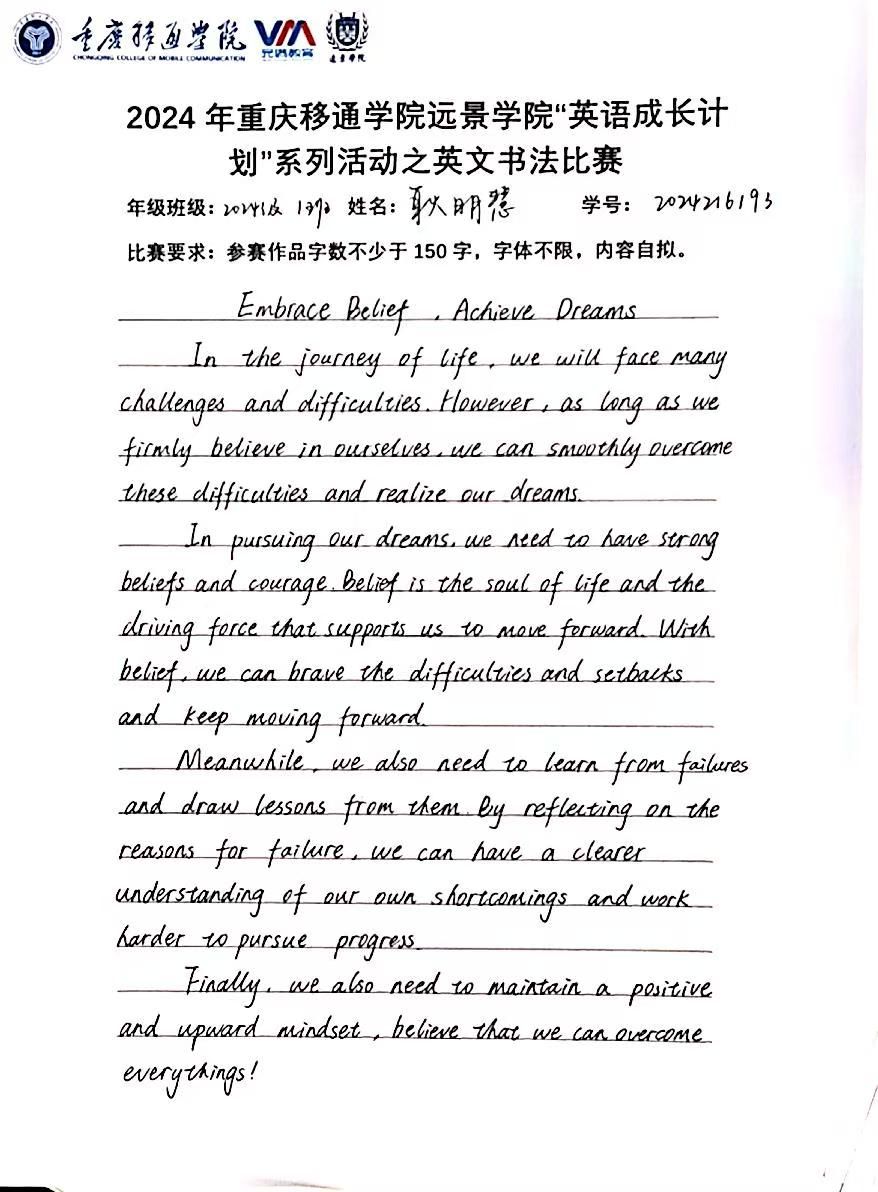 重庆移通学院
CHONGQING COLLEGE OF MOBILE COMMUNICATION
远景学院
2024 年重庆移通学院远景学院“英语成长计
划”系列活动之英文书法比赛
年级班级: 2024级 1班 姓名: 耿明慧 学号: 2024216193
比赛要求：参赛作品字数不少于 150 字，字体不限，内容自拟。
Embrace Belief , Achieve Dreams
In the journey of life , we will face many
challenges and difficulties. However , as long as we
firmly believe in ourselves, we can smoothly overcome
these difficulties and realize our dreams.
In pursuing our dreams, we need to have strong
beliefs and courage. Belief is the soul of life and the
driving force that supports us to move forward. With
belief, we can brave the difficulties and setbacks
and keep moving forward.
Meanwhile , we also need to learn from failures
and draw lessons from them. By reflecting on the
reasons for failure , we can have a clearer
understanding of our own shortcomings and work
harder to pursue progress
Finally, we also need to maintain a positive
and upward mindset , believe that we can overcome
everythings!